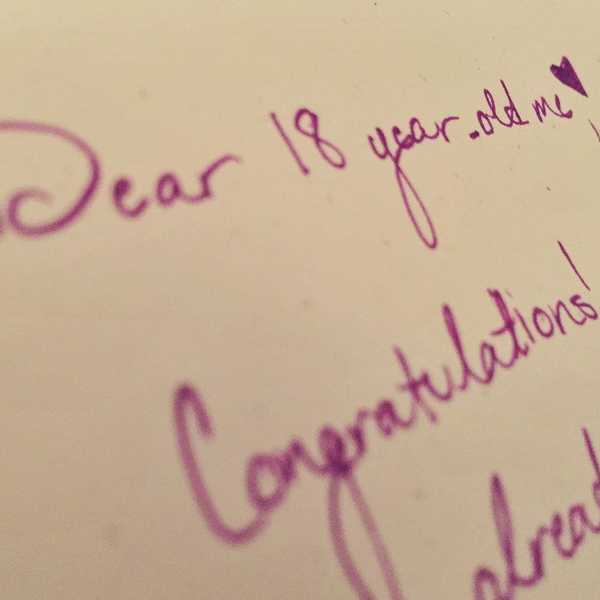 Dear 18 year-old me,
Congratulations!
alread